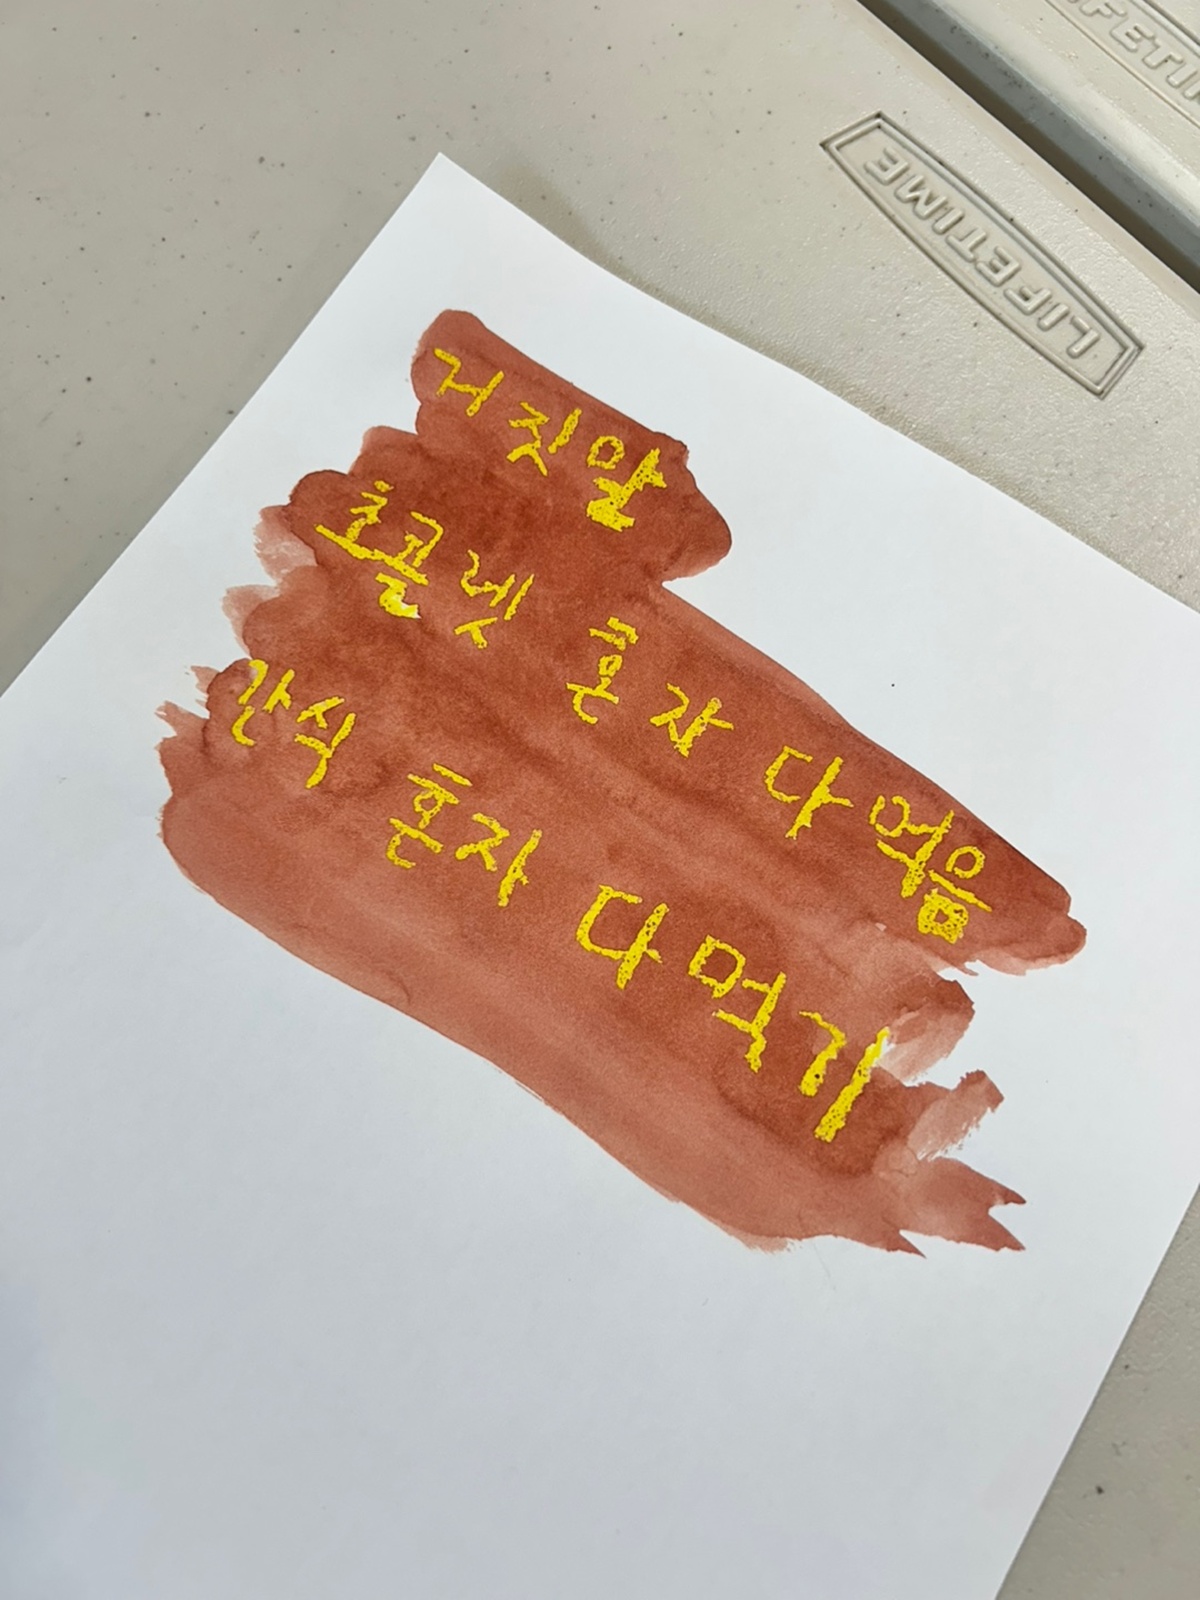 거짓말
초콜렛 혼자 다 먹음
간식 혼자 다 먹기
LIFETIME
LIFETIM